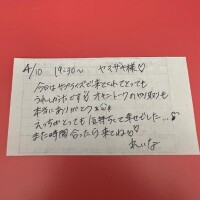 4/10 19:30~ ヤマザキ様♡
今日はサプライズで来てくれてとっても
うれしかったです♡ オキニトークのやり取りも
本当にありがとう♡
えっちがとっても気持ちくて幸せでした...♡
また時間合ったら来てね♡
れいな